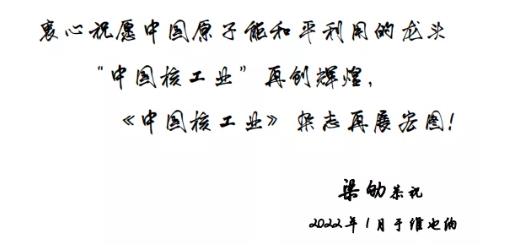 衷心祝愿中国原子能和平利用的龙头
“中国核工业”再创辉煌，
《中国核工业》杂志再展宏图！
梁劬恭祝
2022年1月于维也纳